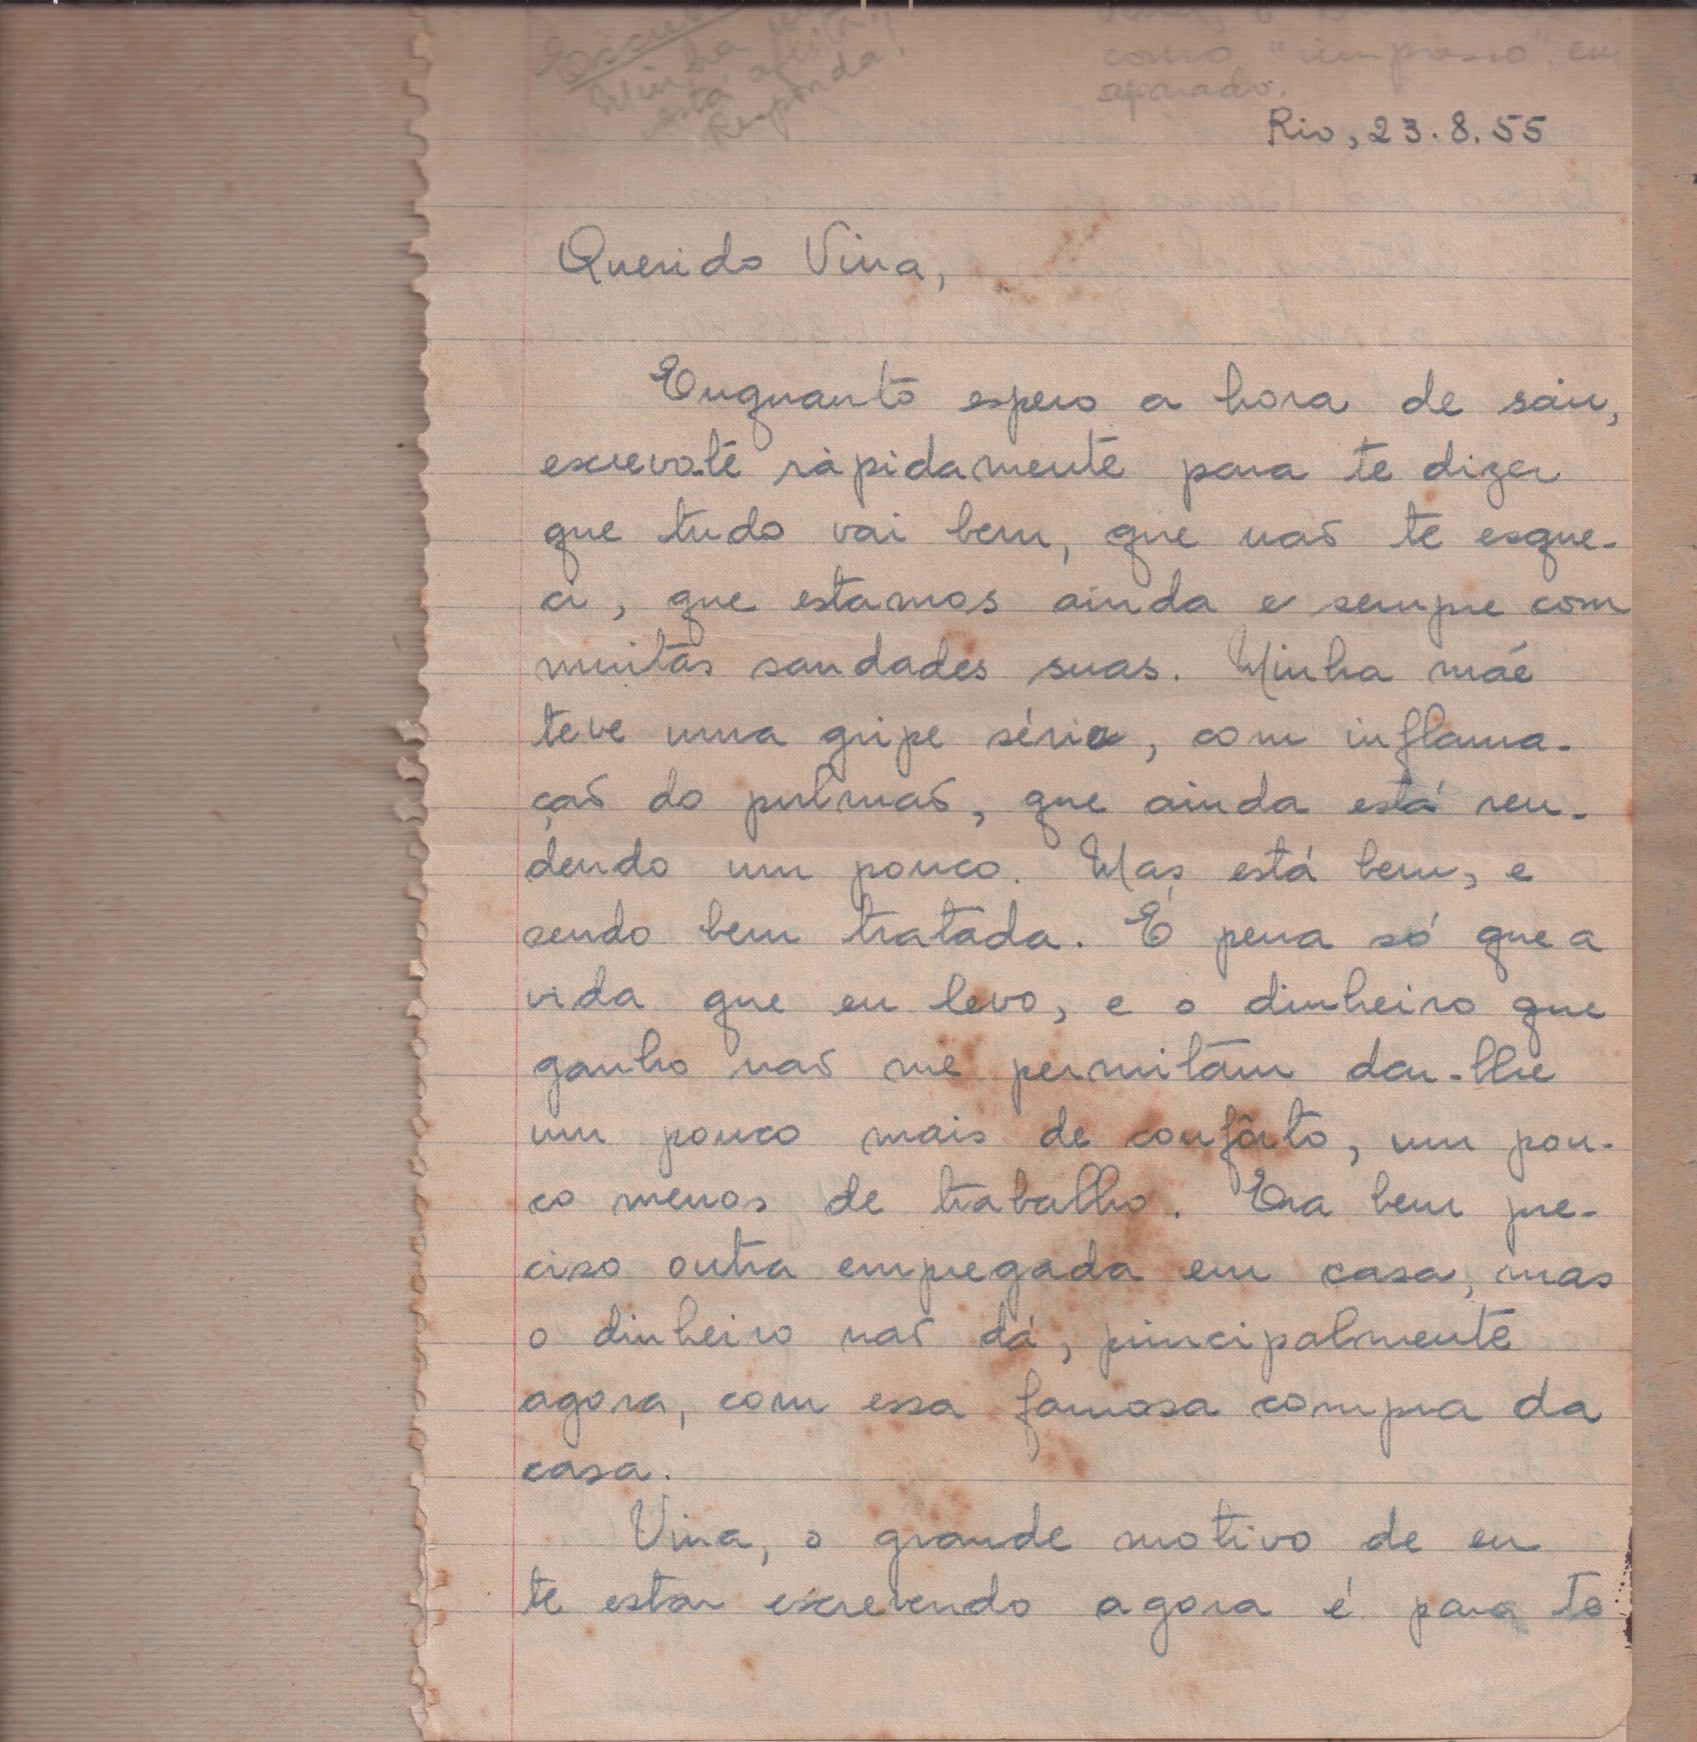 Minha
está aflita!!
Responda!
como "impresso", em
separado.
Rio, 23.8.55
Querido Vina,
Enquanto espero a hora de sair,
escrevo-te ràpidamente para te dizer
que tudo vai bem, que não te esque-
ci, que estamos ainda e sempre com
muitas saudades suas. Minha mãe
teve uma gripe séria, com inflama-
ção do pulmão, que ainda está ren-
dendo um pouco. Mas está bem, e
sendo bem tratada. É pena só que a
vida que eu levo, e o dinheiro que
ganho não me permitam dar-lhe
um pouco mais de confôrto, um pou-
co menos de trabalho. Era bem pre-
ciso outra empregada em casa, mas
o dinheiro não dá, principalmente
agora, com essa famosa compra da
casa.
Vina, o grande motivo de eu
te estar escrevendo agora é para te